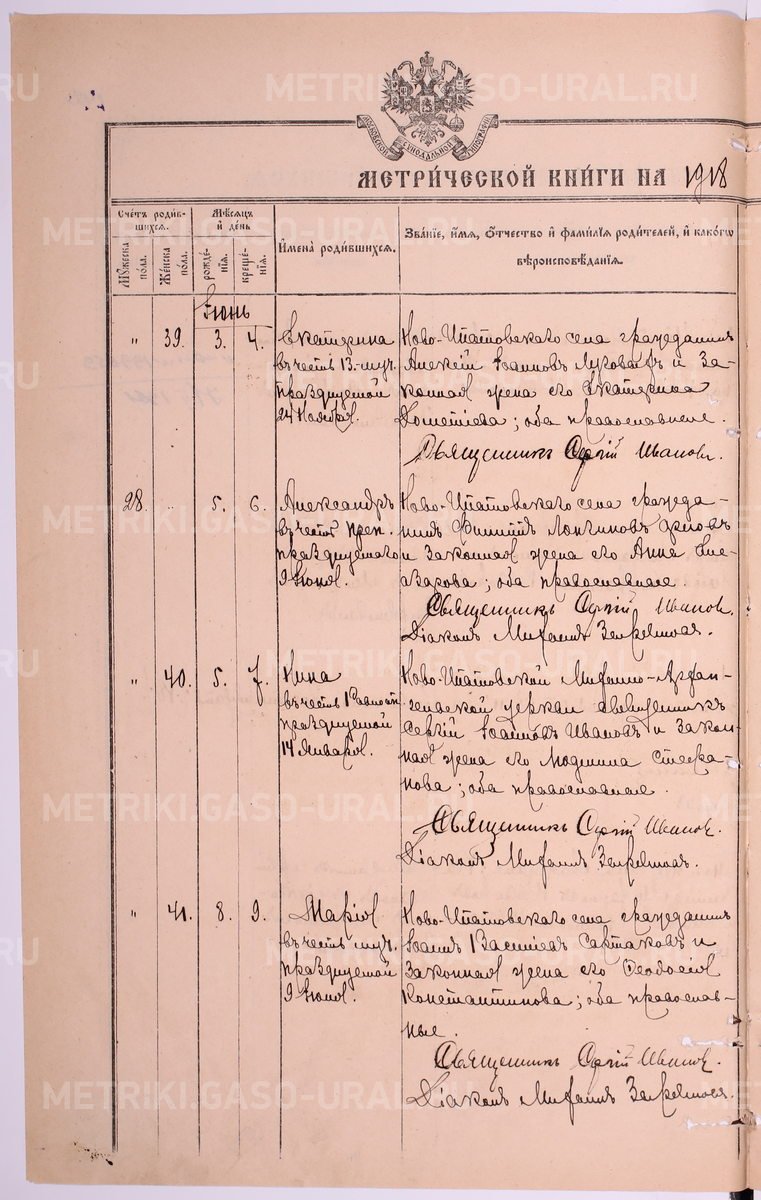 МОСКОВСКОЙ СѴНОДАЛЬНОЙ ТИПОГРАФІИ
МЕТРИЧЕСКОЙ КНИГИ НА 1918
Счетъ родив-
шихся.
Мѣсяцъ
и день
Мужеска
пола.
Женска
пола.
рожде-
нія.
креще-
нія.
Имена родившихся.
Званіе, имя, отчество и фамилія родителей, и какого
вѣроисповѣданія.
Іюнь
" 39. 3. 4.
Екатерина
въ честь 13. муч.
празднуемой
24 Ноября.
Ново-Ипатовскаго села гражданинъ
Алексій Іоанновъ и за-
конная жена его Екатерина
Дометіева; оба православные.
Священникъ Сергій Ивановъ.
28. .. 5. 6.
Александръ
въ честь преп.
празднуемаго
9 Іюня.
Ново-Ипатовскаго села гражда-
нинъ Филиппъ Логиновъ
и законная жена его Анна Еле-
азарова; оба православные.
Священникъ Сергій Ивановъ.
Діаконъ Михаилъ
" 40. 5. 7.
Нина
въ честь Равноап.
празднуемой
14 Января.
Ново-Ипатовской Михаило-Архан-
гельской церкви священникъ
Сергій Іоанновъ Ивановъ и закон-
ная жена его Людмила Стефа-
нова; оба православные.
Священникъ Сергій Ивановъ.
Діаконъ Михаилъ
" 41. 8. 9.
Марія
въ честь муч.
празднуемой
9 Іюня.
Ново-Ипатовскаго села гражданинъ
Іоаннъ Васильевъ Сартаковъ и
законная жена его Ѳеодосія
Константинова; оба православ-
ные.
Священникъ Сергій Ивановъ.
Діаконъ Михаилъ
METRIKI.GASO-URAL.RU